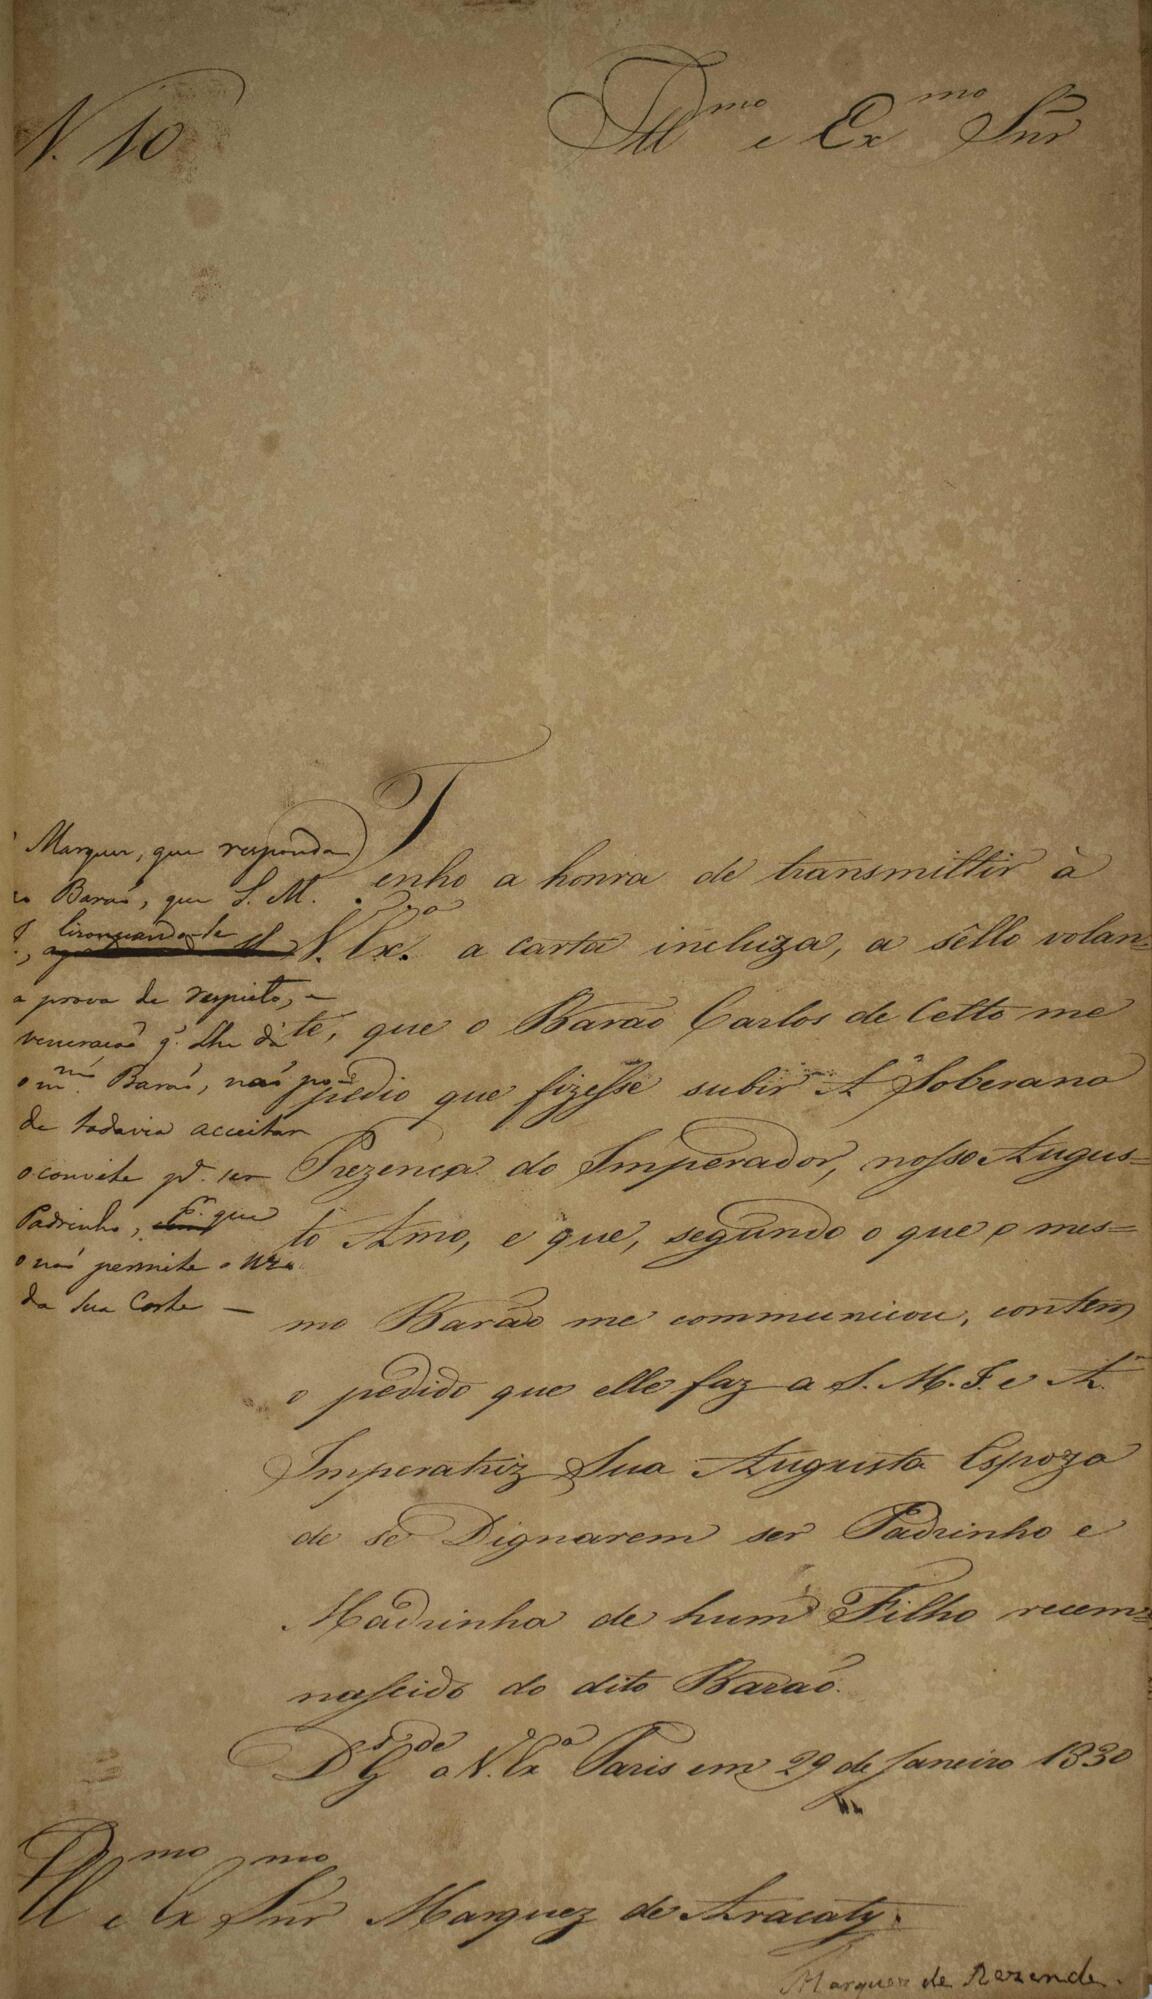 N. 10
Ill.mo e Ex.mo Snr
Marquez, que responda
Baraõ, que S. M.
lisongeando-lhe
a prova de respeito, e
veneração q. Lhe dá
o m.mo Baraõ, naõ po
de todavia acceitar
o convite p.ª ser
Padrinho, p.r que
o naõ permitte o uzo
da Sua Corte —
Tenho a honra de transmittir à
V. Ex.ª a carta incluza, a sêllo volan=
te, que o Barão Carlos de Cetto me
pedio que fizesse subir A' Soberana
Prezença do Imperador, nosso Augus=
to Amo, e que, segundo o que o mes=
mo Barão me communicou, contem
o pedido que elle faz a S. M. I. e A'
Imperatriz Sua Augusta Espoza
de se Dignarem ser Padrinho e
Madrinha de hum Filho recem=
nascido do dito Barão.
D.s G.de a V. Ex.ª Paris em 29 de Janeiro 1830
Ill.mo e Ex.mo Snr Marquez de Aracaty.
Marquez de Rezende.